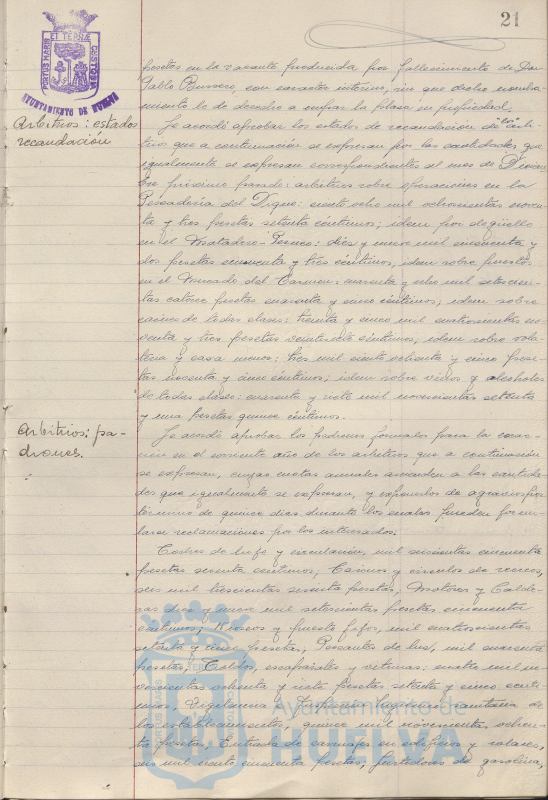 21
PORTUS MARIS ET TERRÆ CUSTODIA
AYUNTAMIENTO DE HUELVA
pesetas en la vacante producida por fallecimiento de Don
Pablo Romero, con caracter interino, sin que dicho nombra-
miento le de derecho a ocupar la plaza en propiedad.
Arbitrios: estados
recaudación
Se acordó aprobar los estados de recaudación de los arbi-
trios que a continuación se expresan por las cantidades que
igualmente se expresan correspondientes al mes de Diciem-
bre proximo pasado: arbitrios sobre operaciones en la
Pescaderia del Dique: ciento ocho mil ochocientas noven-
ta y tres pesetas setenta céntimos; idem por degüello
en el Matadero-Perneo: diez y nueve mil cincuenta y
dos pesetas cincuenta y tres céntimos, idem sobre puestos
en el Mercado del Carmen: cuarenta y ocho mil setecien-
tas catorce pesetas cuarenta y cinco céntimos; idem sobre
carnes de todas clases: treinta y cinco mil cuatrocientas no-
venta y tres pesetas veintisiete céntimos, idem sobre vola-
teria y caza menor: tres mil ciento ochenta y cinco pese-
tas noventa y cinco céntimos; idem sobre vinos y alcoholes
de todas clases: cuarenta y siete mil novecientas setenta
y una pesetas quince céntimos.
Arbitrios: pa-
drones.
Se acordó aprobar los padrones formados para la exac-
ción en el corriente año de los arbitrios que a continuación
se expresan, cuyas cuotas anuales ascienden a las cantida-
des que igualmente se expresan, y exponerlos de agravios por
término de quince dias, durante los cuales pueden formu-
larse reclamaciones por los interesados.
Coches de lujo y circulación, mil seiscientas cincuenta
pesetas sesenta céntimos; Casinos y circulos de recreo,
seis mil trescientas sesenta pesetas, Motores y Calde-
ras diez y nueve mil setecientas pesetas cincuenta
céntimos; Kioscos y puestos fijos, mil cuatrocientas
setenta y cinco pesetas, Pescantes de luz, mil cuarenta
pesetas, Toldos, escaparates y vitrinas: cuatro mil no-
vecientas ochenta y siete pesetas setenta y cinco centi-
mos, Vigilancia e Inspección Higienico-sanitaria de
los establecimientos, quince mil novecientas ochen-
ta pesetas, Entrada de carruajes en edificios y solares,
seis mil ciento cincuenta pesetas, Surtidores de gasolina,
Ayuntamiento de
HUELVA